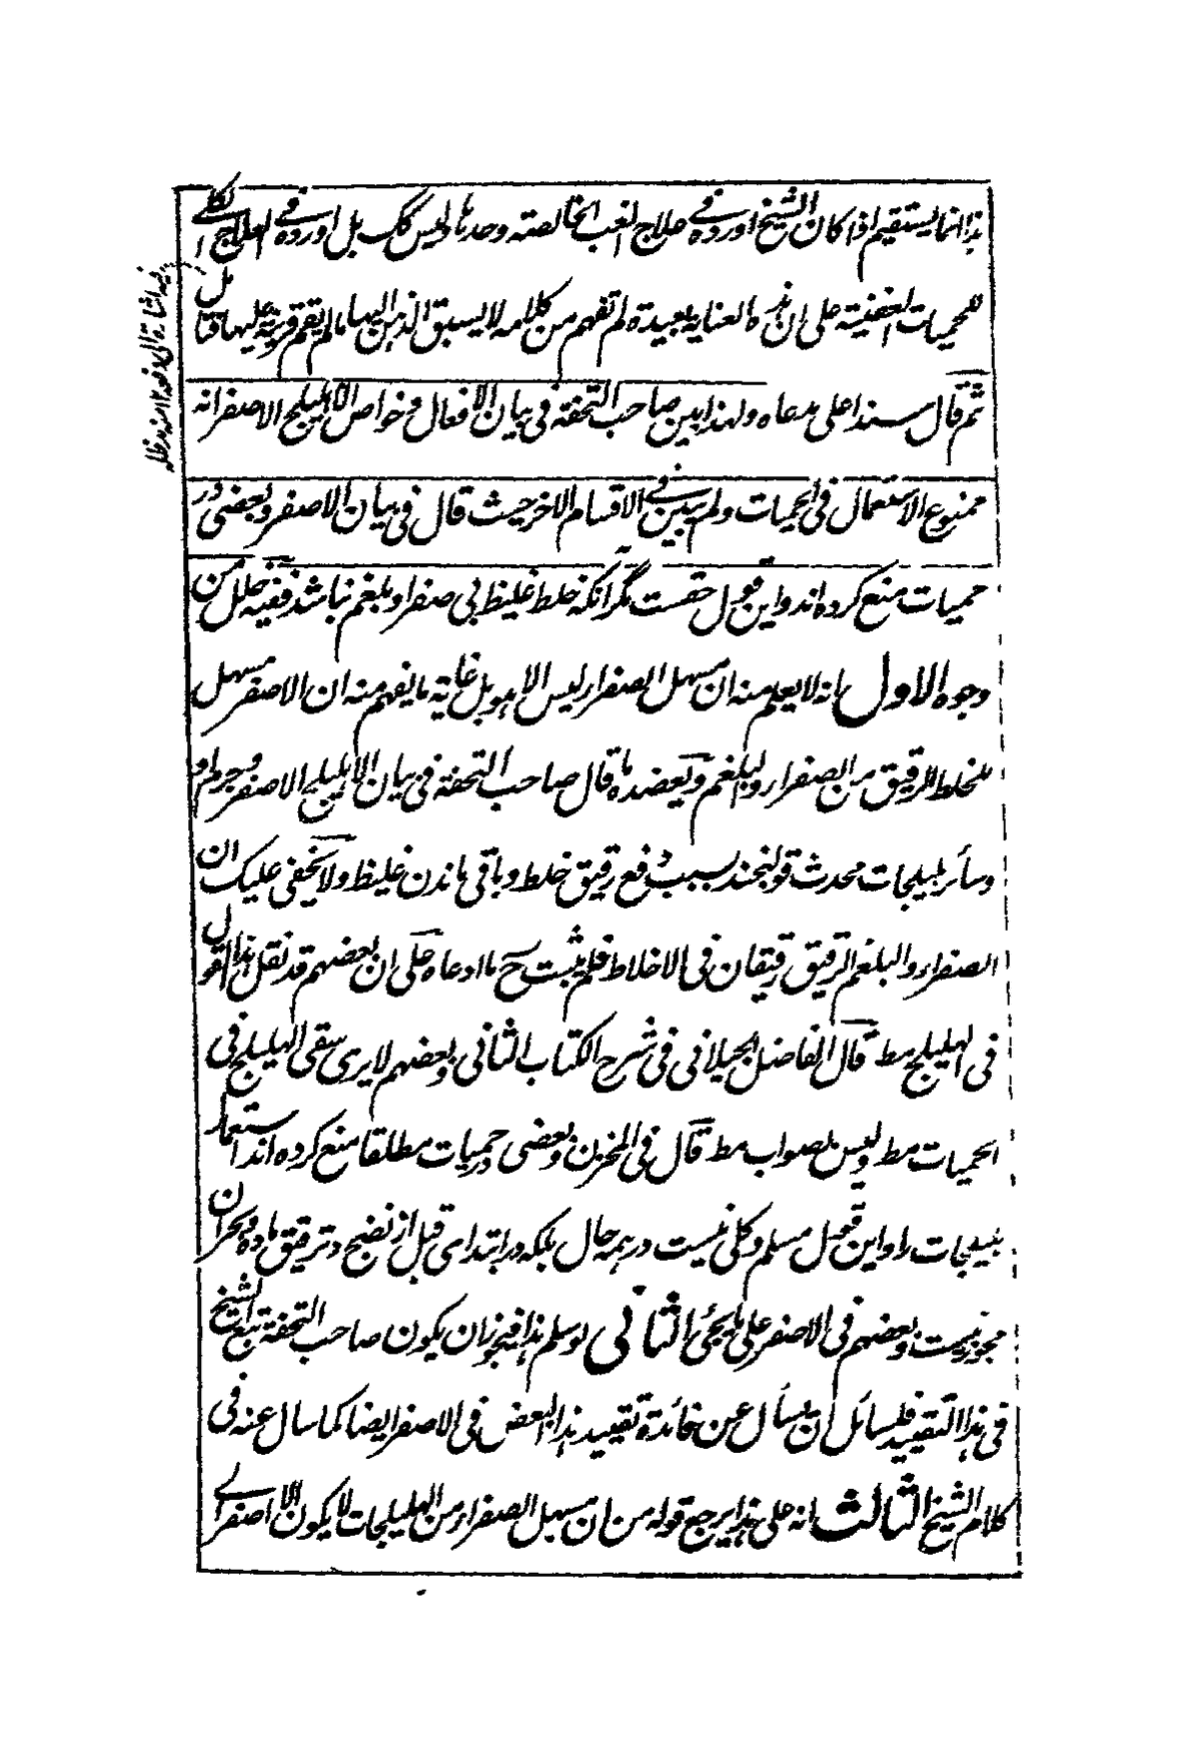 هذا انما يستقيم اذا كان الشيخ اورده فى علاج الغب الخالصة وحدها وليس كك بل اورده فى العلاج الكلى
للحميات العفنية على ان هذه العناية بعيدة لم تفهم من كلامه لا يسبق الذهن اليها ما لم يقم قرينة عليها فتامل
ثم قال سندا على مدعاه ولهذا بين صاحب التحفة فى بيان الافعال و خواص الاهليلج الاصفر انه
ممنوع الاستعمال فى الحميات ولم يبين فى الاقسام الاخر حيث قال فى بيان الاصفر وبعضى در
حميات منع كرده اند و اين قول حقست مگر آنكه خلط غليظ بى صفرا و بلغم نباشد ففيه خلل من
وجوه الاول انه لا يعلم منه ان مسهل الصفراء ليس الا هو بل غاية ما يفهم منه ان الاصفر مسهل
للخلط الرقيق من الصفراء والبلغم ويعضده ما قال صاحب التحفة فى بيان الاهليلج الاصفر وجرم او
وسائر هليلجات محدث قولنجند بسبب دفع رقيق خلط و باقى ماندن غليظ ولا يخفى عليك ان
الصفراء والبلغم الرقيق رقيقان فى الاخلاط فلم يثبت ح ما ادعاه على ان بعضهم قد نقل هذا القول
فى الهليلج مط قال الفاضل الجيلانى فى شرح الكتاب الثانى وبعضهم لا يرى سقى الهليلج فى
الحميات مط وليس بصواب مط قال فى المخزن وبعضى در حميات مطلقا منع كرده اند استعمال
هليلجات را و اين قول مسلم و كلى نيست در همه حال بلكه در ابتداى قبل از نضج و ترقيق ماده و بحران
مجوز نيست وبعضهم فى الاصفر على ما يجئ الثانى لو سلم هذا فيجوز ان يكون صاحب التحفة تبع الشيخ
فى هذا التقييد فلسائل ان يسأل عن فائدة تقييد هذا البعض فى الاصفر ايضا كما سال عنه فى
كلام الشيخ الثالث انه على هذا يرجع قوله من ان مسهل الصفراء من الهليلجات لا يكون الا اصفر اے